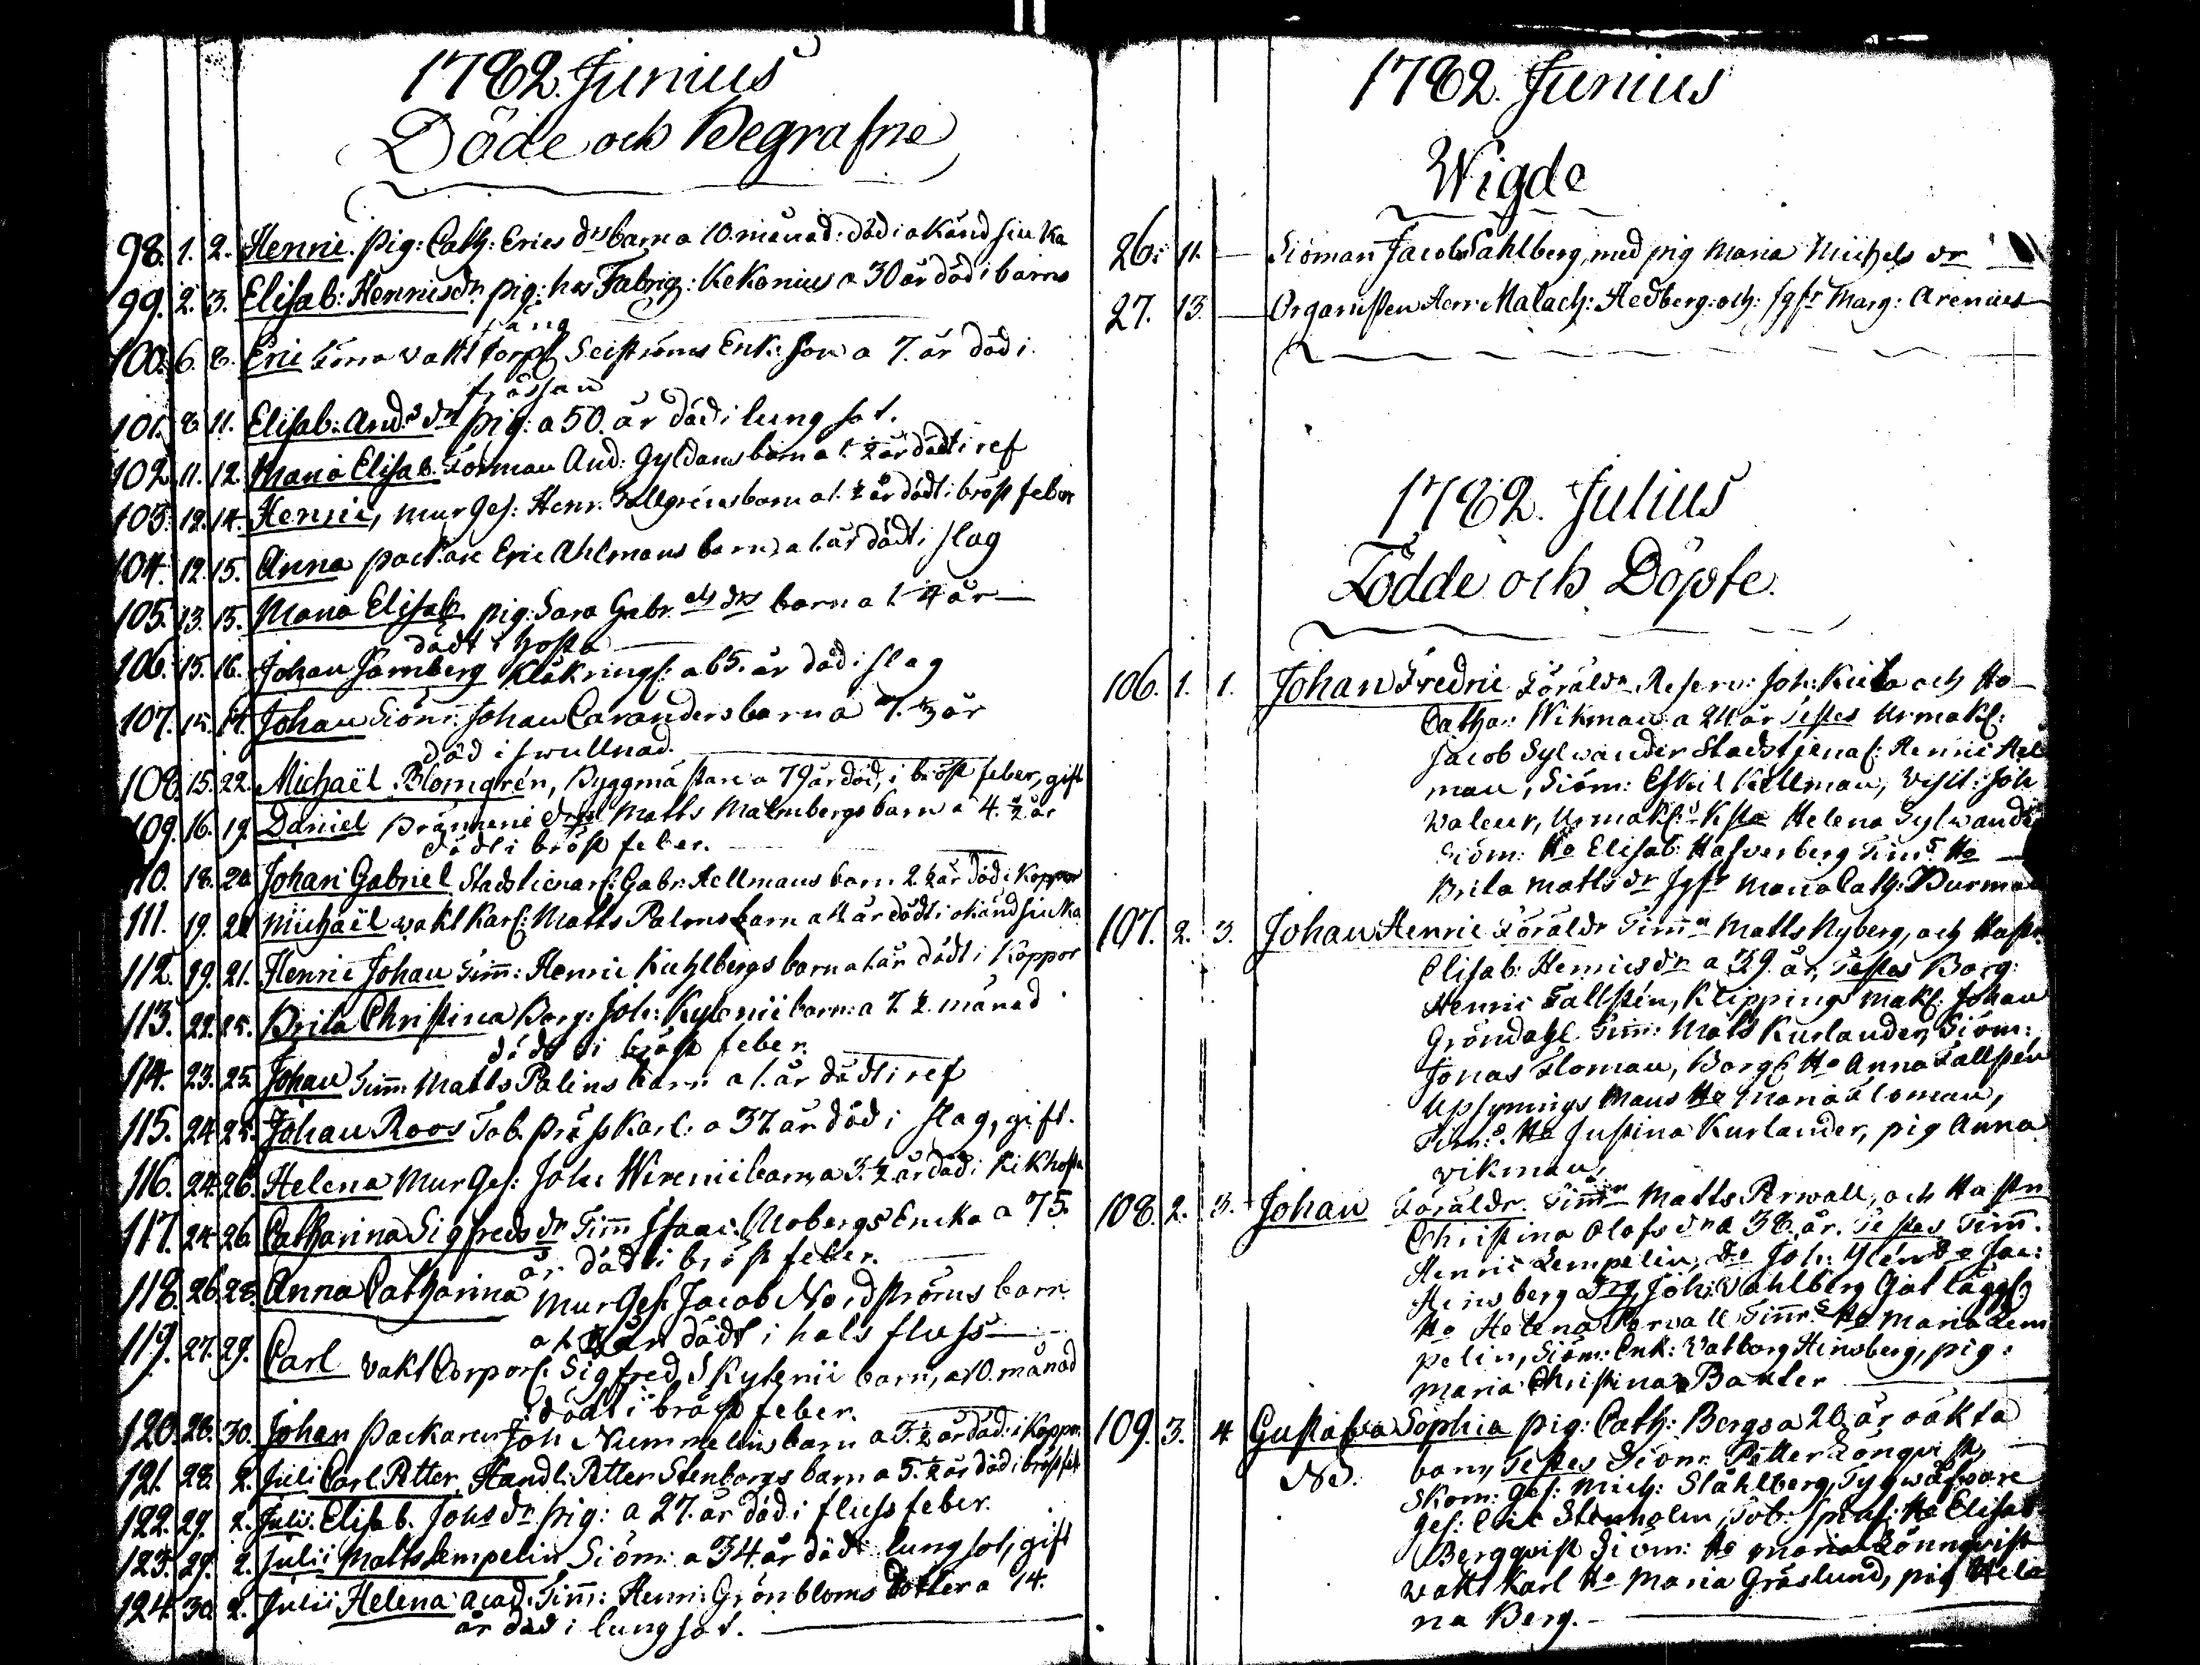 1782. Junius
Döde och Begrafne
98. 1. 2. Henric. pig: Cath: Erics drs barn a 10. månad: död i okänd siuka
99. 2. 3. Elisab: Henricsdr. pig: hos Fabriq: Kekonius a 30 år död i barns
säng
100. 6. 8. Eric förra vakt corpl Seiströms Enk: son a 7. år död i
frässan
101. 8. 11. Elisab: Ands dr pig: a 50. år död i lungsot.
102. 11. 12. Maria Elisab. Forman And: Gyldans barn a 1 1/2 år dödt i ref
103. 12. 14. Henric, murges: Henr. Tallgréns barn a 1. 1/2 år dödt i bröst feber
104. 12. 15. Anna packare Eric Ahlmans barn a 1. år dödt i slag
105. 13. 15. Maria Elisab pig: Sara Gabr. els drs barn a 1 1/4 år
dödt i hosta
106. 15. 16. Johan Jernberg Klåkringf: a 65. år död i slag
107. 15. 17. Johan Siöm: Johan Caranders barn a 7. år
död i swullnad.
108. 15. 22. Michaël Blomgrén, Byggmästare a 79 år död, i bröst feber, gift
109. 16. 19. Daniel Brännerie drg Matts Malmbergs barn a 4. 1/2 år
dödt i bröst feber.
110. 18. 20 Johan Gabriel Stadstienarf: Gabr: Hellmans barn 2. 1/2 år död i Koppor
111. 19. 21 Michaël vakt Karf: Matts Palms barn a 4 år dödt i okänd siuka
112. 19. 21. Henric Johan Timm: Henric Kuhlbergs barn a 1. år dödt i Koppor
113. 22. 25. Brita Christina Borg: Joh: Kylenii barn: a 7 1/2. månad
dödt i bröst feber.
114. 23. 25. Johan Timm Matts Palins barn a 1. år dödt i ref
115. 24 25. Johan Roos Tob. pråss Karl: a 37. år död i slag, gift.
116. 24. 26. Helena Mur Ges: Joh: Wirenii barn, a 3. 1/2 år död i Kikhosta
117. 24 26. Catharina Sigfreds dr Timm Isaac: Mobergs Encka a 75.
år död i bröst feber.
118. 26. 28. Anna Catharina Mur Ges: Jacob Nordströms barn
a 1. år dödt i hals fluss
119. 27. 29. Carl vakt Corporf: Sigfred Skytenii barn, a 10. månad
dödt i bröst feber.
120. 28. 30. Johan packaren Joh Nummelins barn a 3. 1/2 år död i Koppor
121. 28. 2. Juli. Carl Petter, Handl: Petter Stenborgs barn a 5. 1/2 år död i bröst feb
122. 29. 2. Julii. Elisab. Johs dr pig: a 27. år död i fluss feber.
123. 29. 2. Julii Matts Lempelin Siöm: a 34 år död lungsot, gift
124. 30. 2. Julii Helena acad: Timm: Henr: Grönbloms dotter a 14.
år död i lungsot.
1782. Junius
Wigde
26. 11. Siöman Jacob Sahlberg, med pig Maria Michels dr
27. 13. Organisten Herr Malach: Hedberg: och: Jgfr Marg: Arenius
1782. Julius
Födde och Döpte.
106. 1. 1. Johan Fredric Föräldr Reserv: Joh: Kuila och Ho
Catha: Wikman a 24 år Testes Urmakf:
Jacob Sylwander Stadstjenaf: Henric Hel
man, Siöm: Eskil Kellman, Visit: Joh
Waleur, Urmakf: Hsta Helena Sylwander
Siöm: Ho Elisab: Hasverberg Tims Ho
Brita Matts dr Jgfr Maria Cath: Burman
107. 2. 3. Johan Henric Föräldr Timmn Matts Nyberg, och Hustr
Elisab: Henrics dr a 39. år, Testes Borg:
Henric Tallstén, Klippings makf: Johan
Gröndahl Timm: Matts Kurlander, Siöm:
Jonas Floman, Borgf: Ho Anna Tallstén
Upsynings Mans Ho Maria Floman,
Timm:s Ho Justina Kurlander, pig Anna
Vikman,
108. 2. 3. Johan Föräldr. Timmn Matts Perwall, och Hustr
Christina Olofs dr a 38. år. Testes Timm.
Henric Lempelin, do Joh: Ylén do Jac:
Hinsberg Drg Joh: Wahlberg Gat lägg
Ho Helena Perwall Timrs Ho Maria Lem
pelin, Siöm: Enk: Valborg Hinsberg, pig:
Maria Christina Baxter
109. 3. 4 Gustafva Sophia pig: Cath: Bergs a 28 år oäkta
Nd. barn, Testes Siöm: Petter Lönqvist,
Skom: ges: Mich: Ståhlberg, Tygwäfware
ges: Eric Stenholm, Tob: spinf: Ho Elisab
Bergqvist Siöm: Ho Maria Lönnqvist
Wakt Karl Ho Maria Gräslund, pig Hele
na Berg.